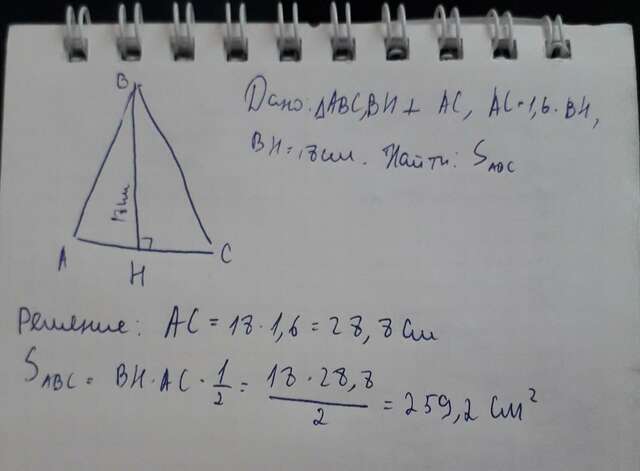 Дано: △ABC, BH ⊥ AC, AC = 1,6 · BH,
BH = 18 см. Найти: S_ABC
B
18 см
A
H
C
Решение: AC = 18 · 1,6 = 28,8 см
S_ABC = BH · AC · 1/2 = 18 · 28,8 / 2 = 259,2 см²